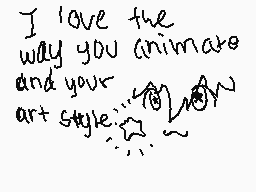 I love the
way you animate
and your
art style